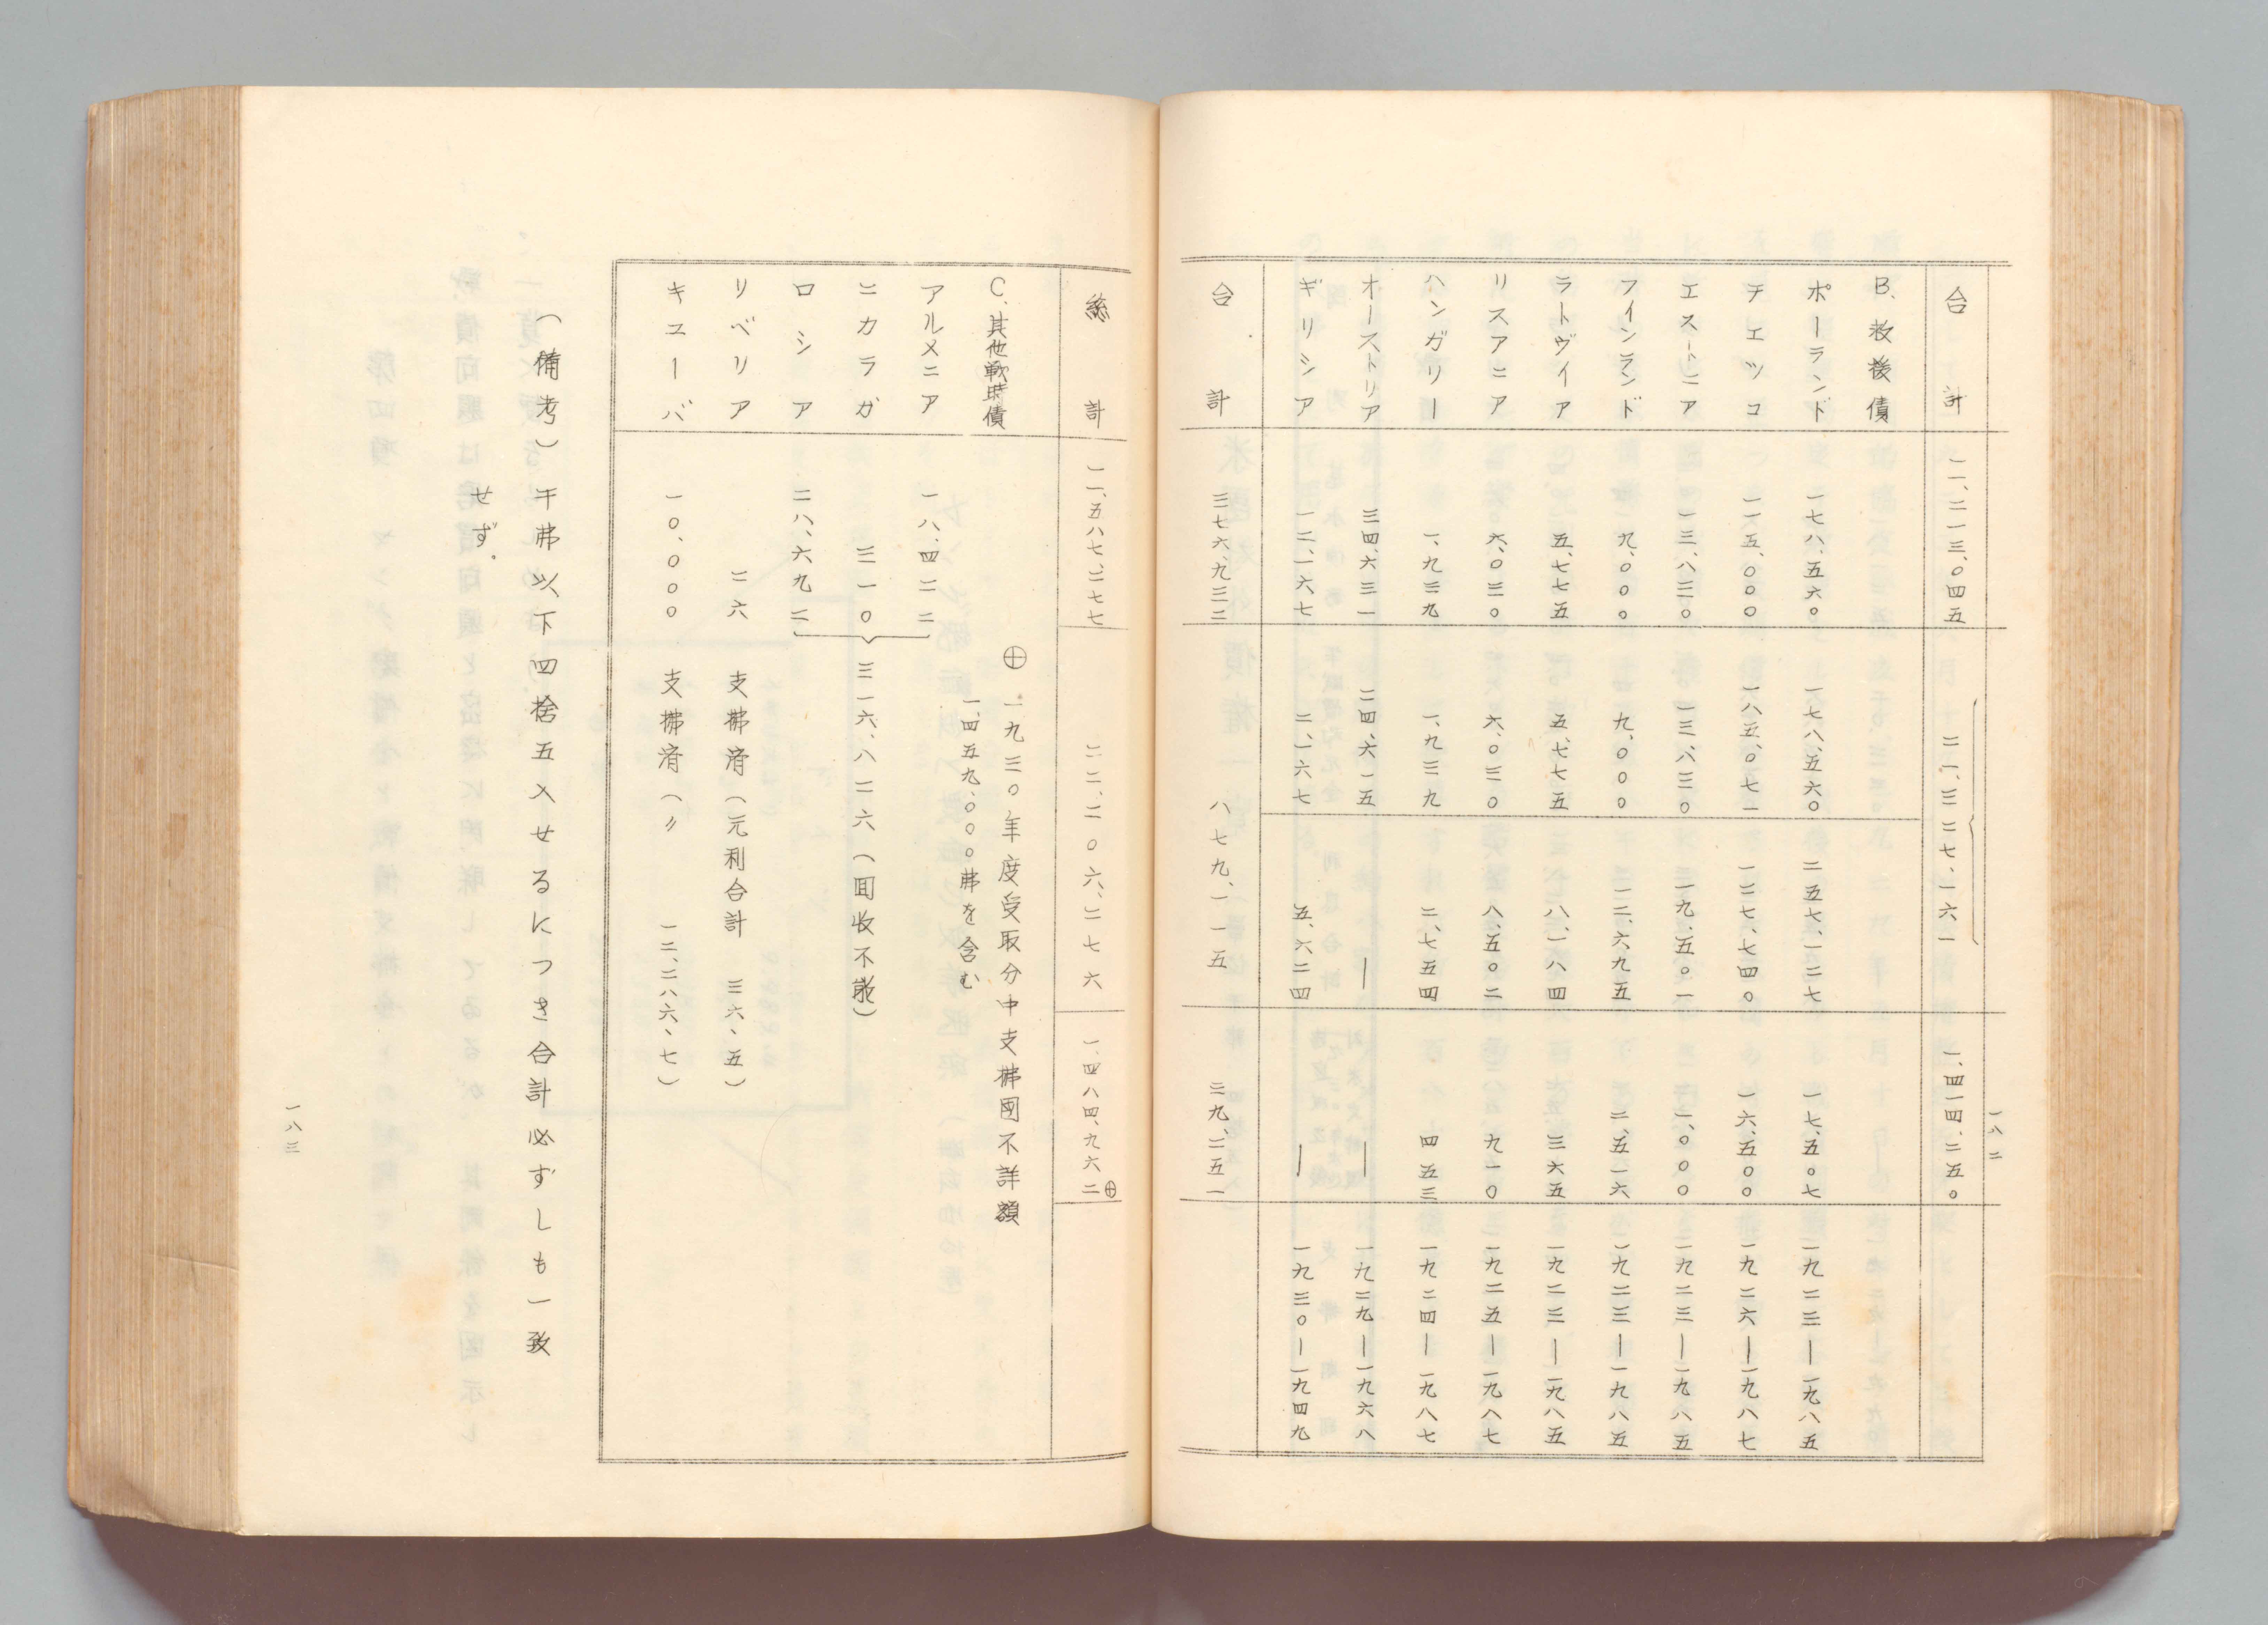 一八二
合計 一一、二一三、〇四五 二一、三二七、一六一 一、四一四、二五〇
B、救援債
ポーランド 一七八、五六〇 一七八、五六〇 二五七、一二七 一七、五〇七 一九二三―一九八五
チエツコ 一一五、〇〇〇 一八五、〇七一 一二七、七四〇 一六、五〇〇 一九二六―一九八七
エストニア 一三、八三〇 一三、八三〇 一九、五〇一 一、〇〇〇 一九二三―一九八五
フインランド 九、〇〇〇 九、〇〇〇 一二、六九五 二、五一六 一九二三―一九八五
ラトヴイア 五、七七五 五、七七五 八、一八四 三六五 一九二三―一九八五
リスアニア 六、〇三〇 六、〇三〇 八、五〇二 九一〇 一九二五―一九八七
ハンガリー 一、九三九 一、九三九 二、七五四 四五三 一九二四―一九八七
オーストリア 三四、六三一 二四、六一五 ― ― 一九二九―一九六八
ギリシア 一二、一六七 二、一六七 五、六二四 ― 一九三〇―一九四九
合計 三七六、九三二 八七九、一一五 二九、二五一
総計 一一、五八七、二七七 二二、二〇六、二七六 一、四八四、九六二⊕
⊕ 一九三〇年度受取分中支拂國不詳額
一、四五九、〇〇〇弗を含む
C、其他戰時債
アルメニア 一八、四二二
ニカラガ 三一〇 三一六、八二六(囘收不能)
ロシア 二八、六九二
リベリア 二六 支拂済(元利合計 三六、五)
キユーバ 一〇、〇〇〇 支拂済(〃 一二、二八六、七)
(備考) 千弗以下四捨五入せるにつき合計必ずしも一致
せず。
一八三